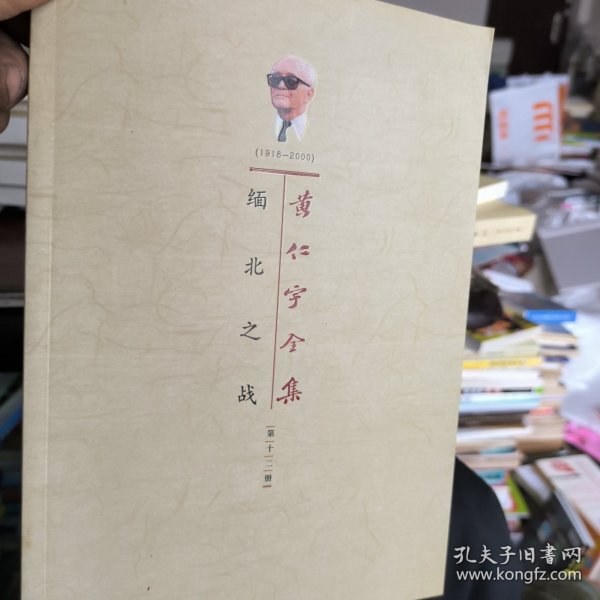 (1918-2000)
黄仁宇全集
缅北之战
第十二册
孔夫子旧书网
www.kongfz.com